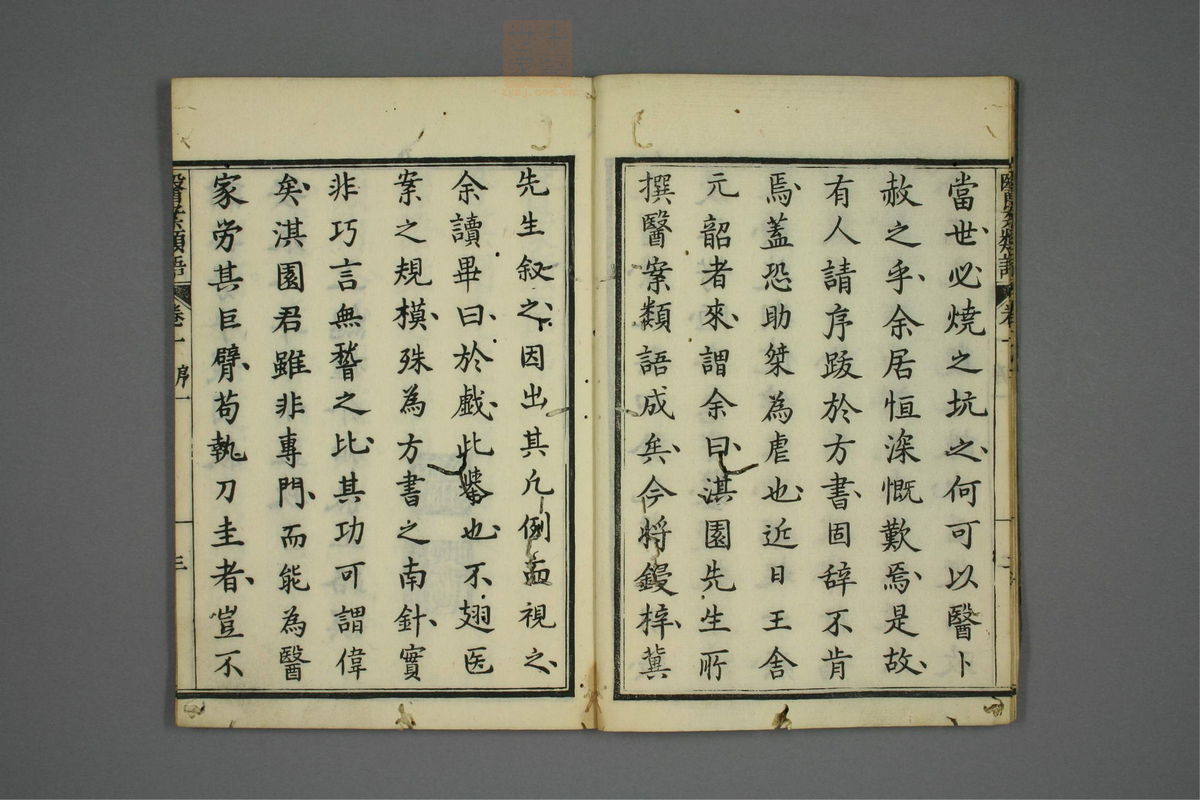 當世必燒之坑之何可以醫卜
赦之乎余居恒深慨歎焉是故
有人請序跋於方書固辞不肯
焉蓋恐助桀為虐也近日王舍
元韶者來謂余曰淇園先生所
撰醫案類語成矣今将鏝梓冀
先生叙之因出其凡例面視之
余讀畢曰於戲此舉也不翅医
案之規模殊為方書之南針實
非巧言無稽之比其功可謂偉
矣淇園君雖非專門而能為醫
家労其巨臂苟執刀圭者豈不
醫案類語
卷一 序一
三